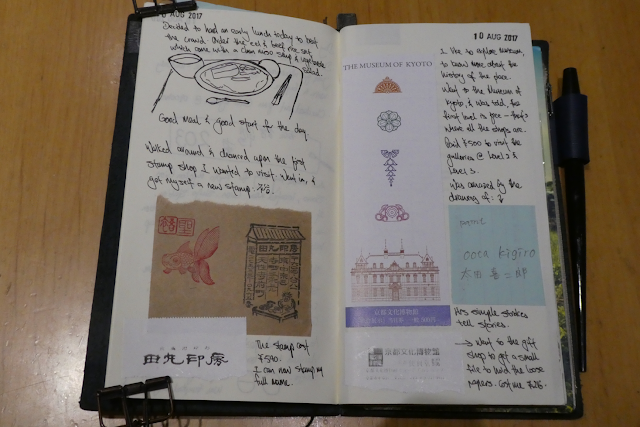 AUG 2017
Decided to had an early lunch today to beat
the crowd. Order the eel & beef rice set
which come with a clam miso soup & vegetable
salad.
Good meal & good start for the day.
Walked around & chanced upon the first
stamp shop I wanted to visit. Went in, &
got myself a new stamp.
田丸印房
The stamp cost
¥590.
I can now stamp my
full name.
THE MUSEUM OF KYOTO
京都文化博物館
京都文化博物館
10 AUG 2017
I like to explore museum,
to know more about the
history of the place.
Went to the Museum of
Kyoto, & was told, the
first level is free - that's
where all the shops are.
Paid ¥500 to visit the
galleries @ Level 2 &
Level 3.
Was amused by the
drawing of:
oota kigiro
太田喜二郎
His simple strokes
tell stories.
→ Went to the gift
shop to get a small
file to hold the loose
papers. Cost me